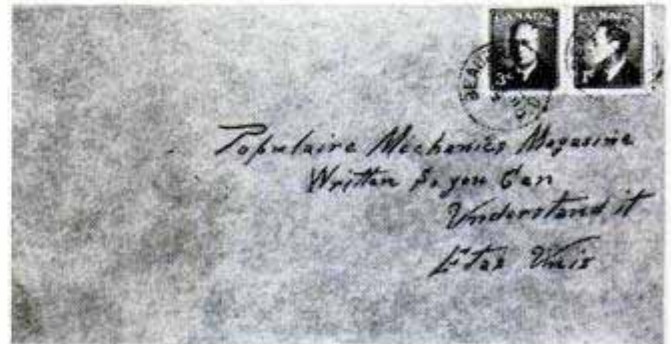 CANADA CANADA
3¢
BEAU
Populaire Mechanics Magasine
Written So you Can
Understand it
Etas Unis